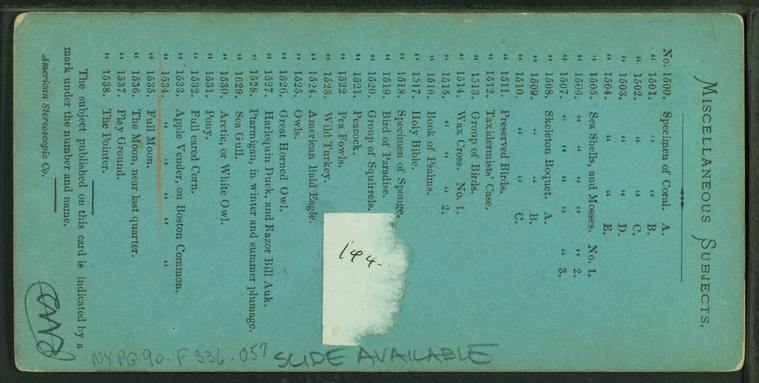 MISCELLANEOUS SUBJECTS.
No. 1500. Specimen of Coral. A.
" 1501. " " B.
" 1502. " " C.
" 1503. " " D.
" 1504. " " E.
" 1505. Sea Shells, and Mosses. No. 1.
" 1506. " " " " 2.
" 1507. " " " " 3.
" 1508. Skeleton Boquet. A.
" 1509. " " B.
" 1510. " " C.
" 1511. Preserved Birds.
" 1512. Taxidermists' Case.
" 1513. Group of Birds.
" 1514. Wax Cross. No. 1.
" 1515. " " " 2.
" 1516. Book of Psalms.
" 1517. Holy Bible.
" 1518. Specimen of Sponge.
" 1519. Bird of Paradise.
" 1520. Group of Squirrels.
" 1521. Peacock.
" 1522 Pea Fowls.
" 1523. Wild Turkey.
" 1524. American Bald Eagle.
" 1525. Owls.
" 1526. Great Horned Owl.
" 1527. Harlequin Duck, and Razor Bill Auk.
" 1528. Ptarmigan, in winter and summer plumage.
" 1629. Sea Gull.
" 1530. Arctic, or White Owl.
" 1531. Pony.
" 1532. Full eared Corn.
" 1533. Apple Vender, on Boston Common.
" 1534. " " " " "
" 1535. Full Moon.
" 1536. The Moon, near last quarter.
" 1537. Play Ground.
" 1538. The Pointer.
The subject published on this card is indicated by a
mark under the number and name.
American Stereoscopic Co.
194-
NYPG 90-F 336.057 SLIDE AVAILABLE